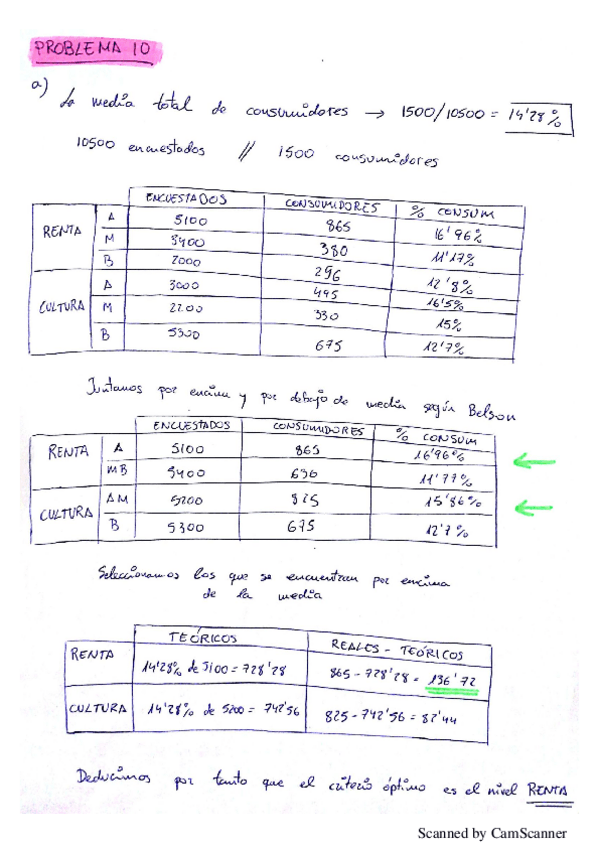 PROBLEMA 10
a) La media total de consumidores → 1500/10500 = 14'28%
10500 encuestados // 1500 consumidores
ENCUESTADOS CONSUMIDORES % CONSUM
RENTA A 5100 865 16'96%
M 3400 380 11'17%
B 2000 296 12'8%
CULTURA A 3000 495 16'5%
M 2200 330 15%
B 5300 675 12'7%
Juntamos por encima y por debajo de media según Belson
ENCUESTADOS CONSUMIDORES % CONSUM
RENTA A 5100 865 16'96%
MB 5400 636 11'77%
CULTURA AM 5200 825 15'86%
B 5300 675 12'7%
Seleccionamos los que se encuentran por encima
de la media
TEÓRICOS REALES - TEÓRICOS
RENTA 14'28% de 5100 = 728'28 865 - 728'28 = 136'72
CULTURA 14'28% de 5200 = 742'56 825 - 742'56 = 82'44
Deducimos por tanto que el criterio óptimo es el nivel RENTA
Scanned by CamScanner